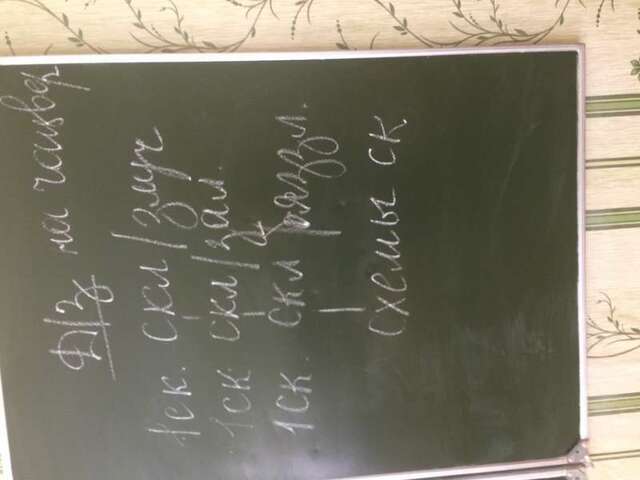 Д/З на чацвер
1 ск. скл/злуч
1 ск скл/зал.
1 ск. скл/бяззл.
схемы ск